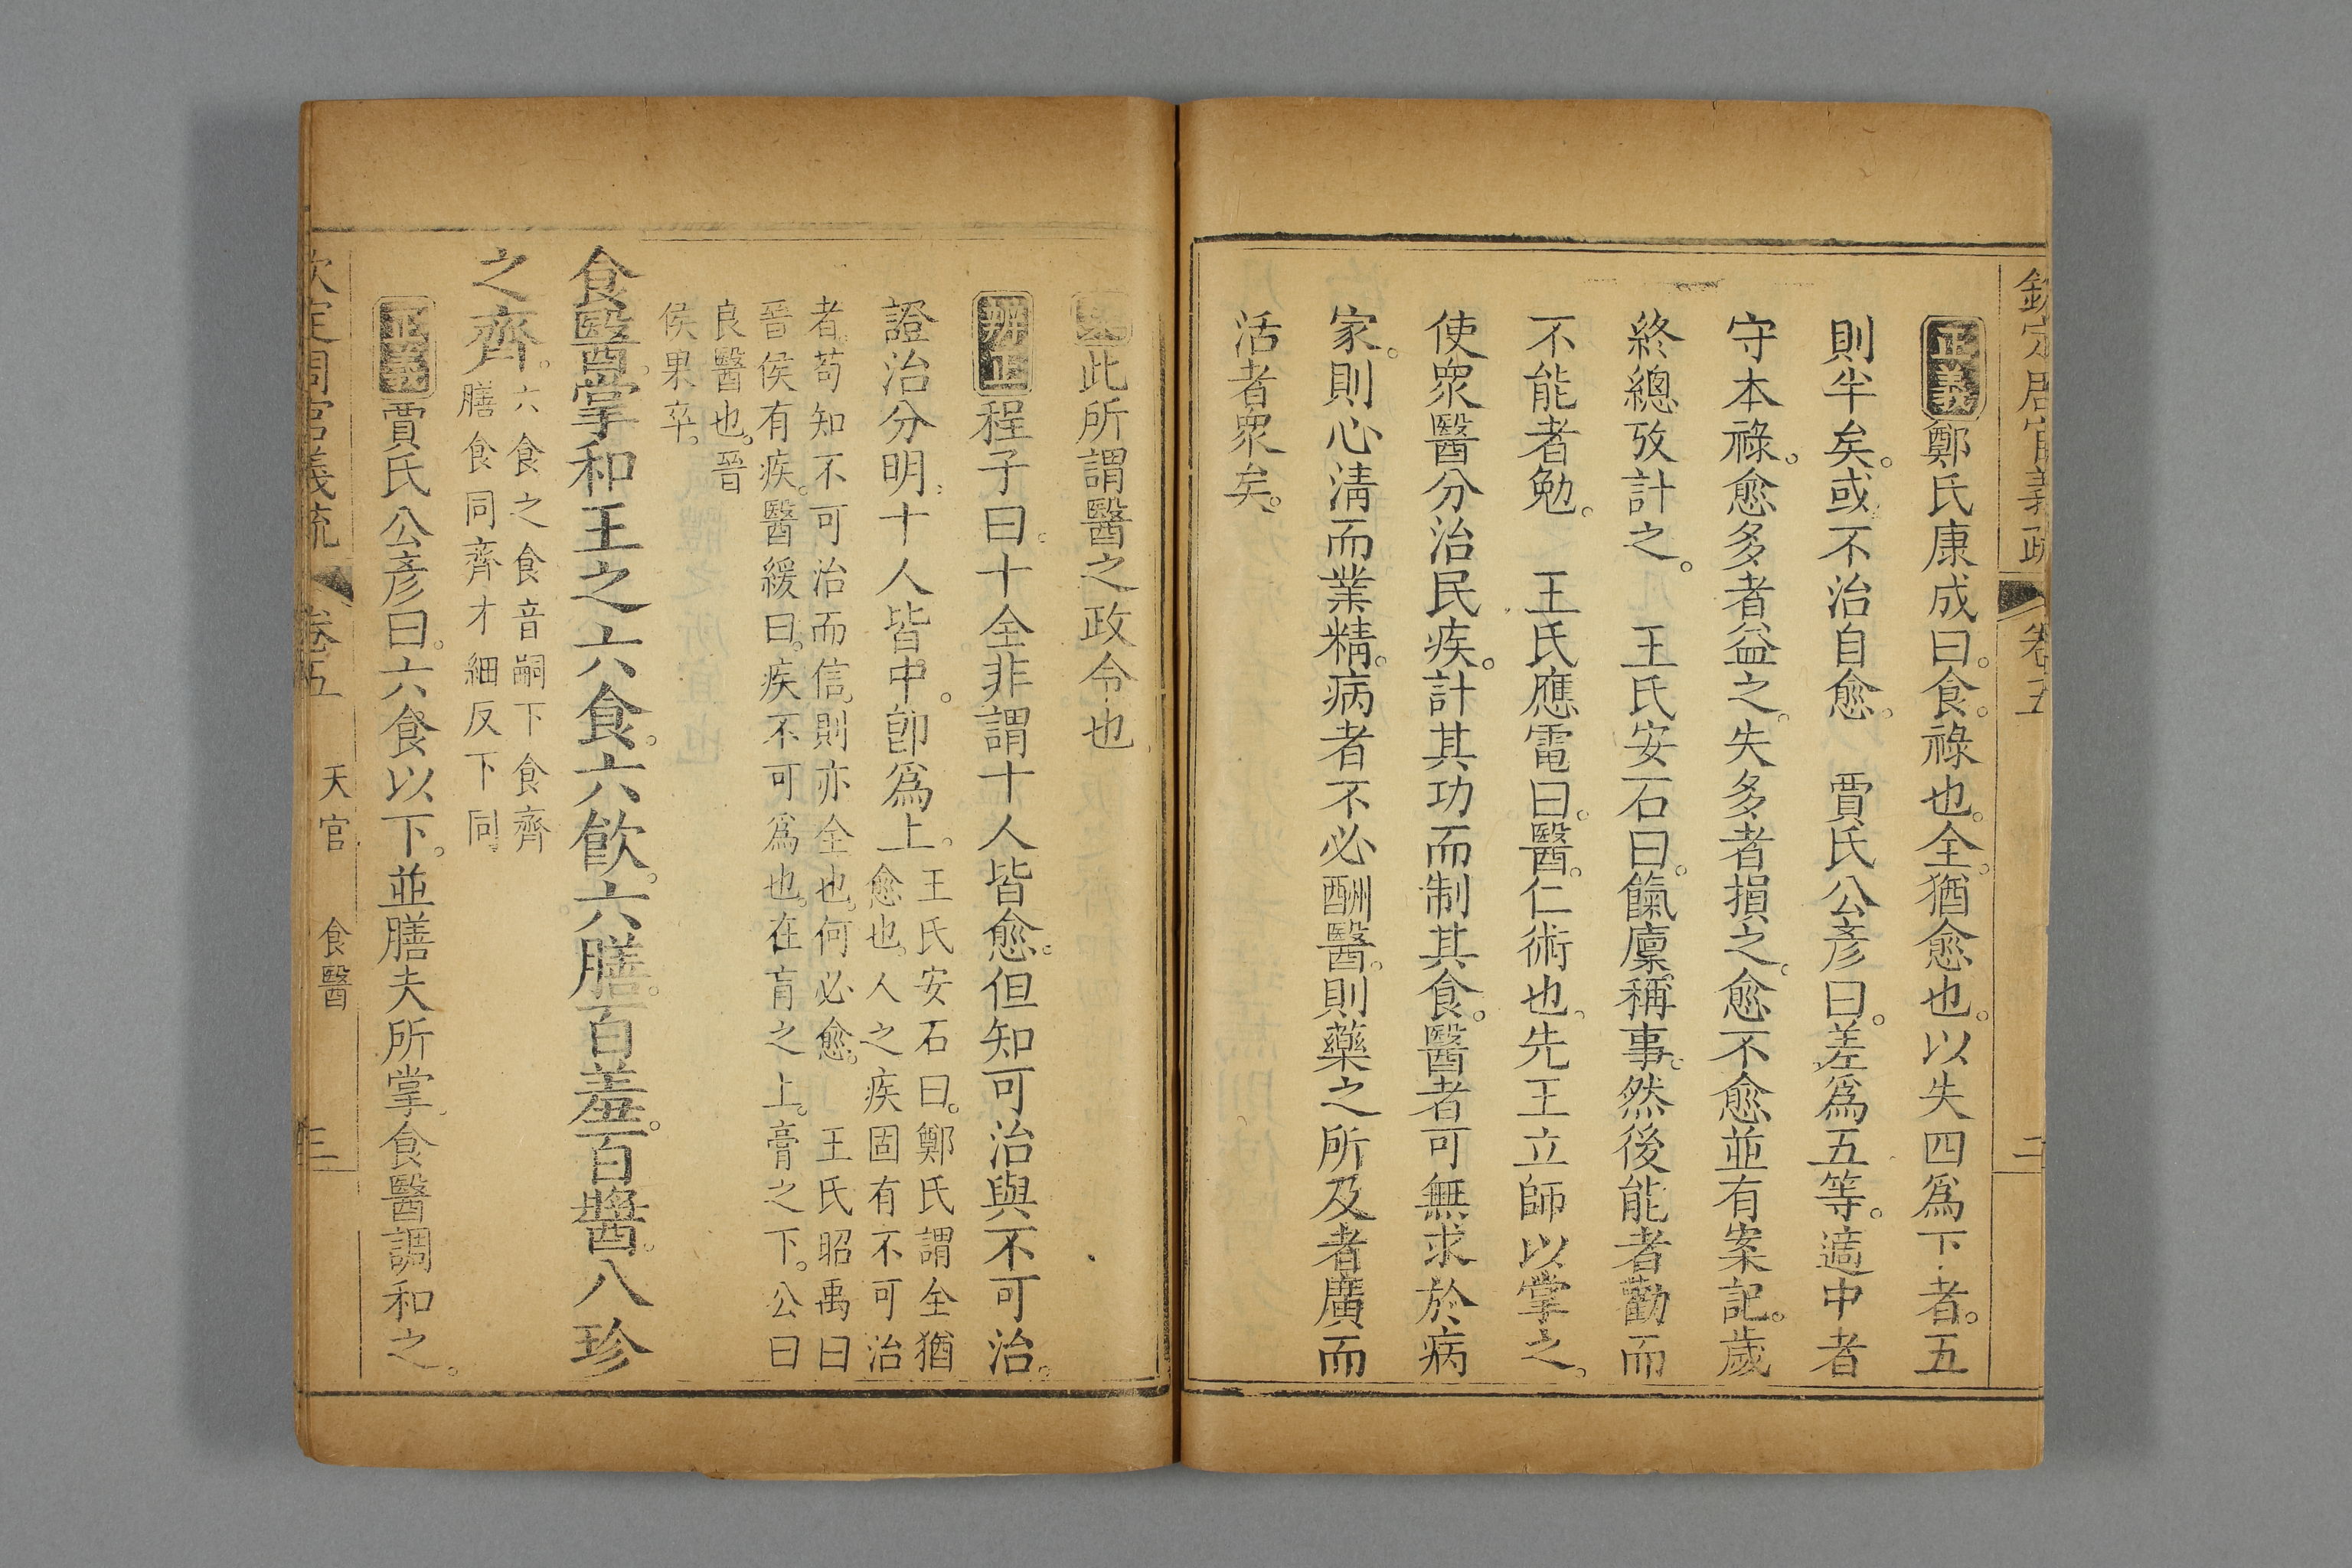 欽定周官義疏 卷五 二
正義鄭氏康成曰。食。祿也。全。猶愈也。以失四爲下者。五
則半矣。或不治自愈。 賈氏公彥曰。差爲五等。適中者
守本祿。愈多者益之。失多者損之。愈不愈並有案記。歲
終總攷計之。 王氏安石曰。餼廩稱事。然後能者勸而
不能者勉。 王氏應電曰。醫。仁術也。先王立師以掌之。
使衆醫分治民疾。計其功而制其食。醫者可無求於病
家。則心淸而業精。病者不必酬醫。則藥之所及者廣而
活者衆矣。
此所謂醫之政令也
辨正程子曰。十全非謂十人皆愈。但知可治與不可治。
證治分明。十人皆中。卽爲上。
王氏安石曰。鄭氏謂全猶
愈也。人之疾固有不可治
者。苟知不可治而信。則亦全也。何必愈。 王氏昭禹曰
晉侯有疾。醫緩曰。疾不可爲也。在肓之上。膏之下。公曰
良醫也。晉
侯果卒。
食醫。掌和王之六食。六飮。六膳。百羞。百醬。八珍
之齊。
六食之食音嗣下食齊
膳食同齊才細反下同
正義賈氏公彥曰。六食以下。並膳夫所掌。食醫調和之。
欽定周官義疏 卷五 天官 食醫 三